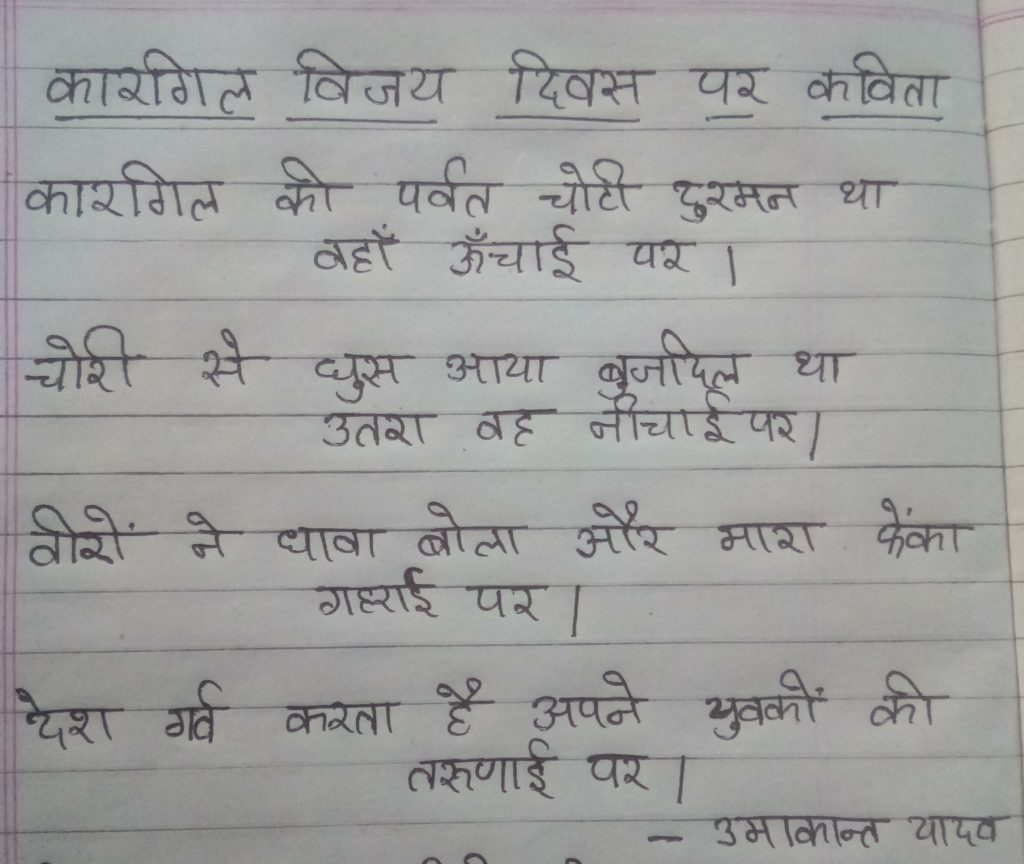 कारगिल विजय दिवस पर कविता
कारगिल की पर्वत चोटी दुश्मन था
वहाँ ऊँचाई पर ।
चोरी से घुस आया बुजदिल था
उतरा वह नीचाई पर ।
वीरों ने धावा बोला और मारा फेंका
गहराई पर ।
देश गर्व करता है अपने युवकों की
तरुणाई पर ।
- उमाकान्त यादव